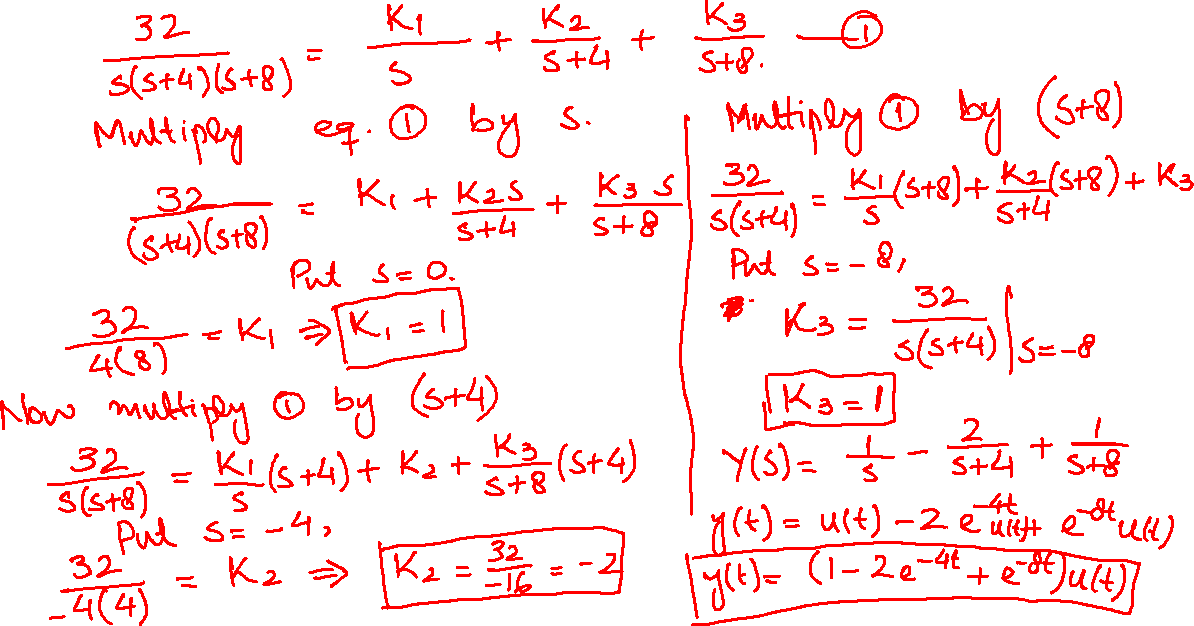 32/(s(s+4)(s+8)) = K₁/s + K₂/(s+4) + K₃/(s+8). — ①
Multiply eq. ① by s.
32/((s+4)(s+8)) = K₁ + K₂s/(s+4) + K₃ s/(s+8)
Put s=0.
32/(4(8)) = K₁ ⇒ K₁ = 1
Now multiply ① by (s+4)
32/(s(s+8)) = K₁/s (s+4) + K₂ + K₃/(s+8) (s+4)
Put s= -4,
32/(-4(4)) = K₂ ⇒ K₂ = 32/-16 = -2
Multiply ① by (s+8)
32/(s(s+4)) = K₁/s (s+8) + K₂/(s+4) (s+8) + K₃
Put s= -8,
K₃ = 32/(s(s+4)) |s=-8
K₃ = 1
Y(s) = 1/s - 2/(s+4) + 1/(s+8)
y(t) = u(t) - 2 e^-4t u(t)+ e^-8t u(t)
y(t) = (1 - 2e^-4t + e^-8t)u(t)